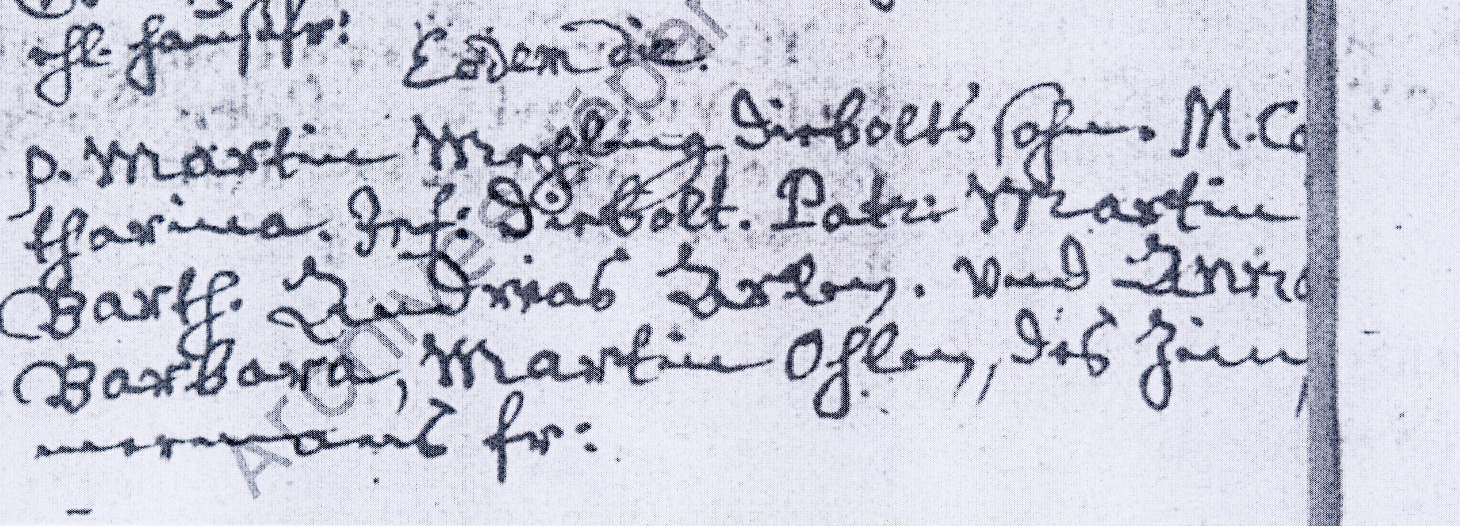 ohl. haußfr:
Eodem die.
P. Martin Megling Diebolts sohn. M. Ca
tharina. Inf: Diebolt. Patr: Martin
Barth. Andreas und Anna
Barbara, Martin Ohlen, des Zim
mermans fr: